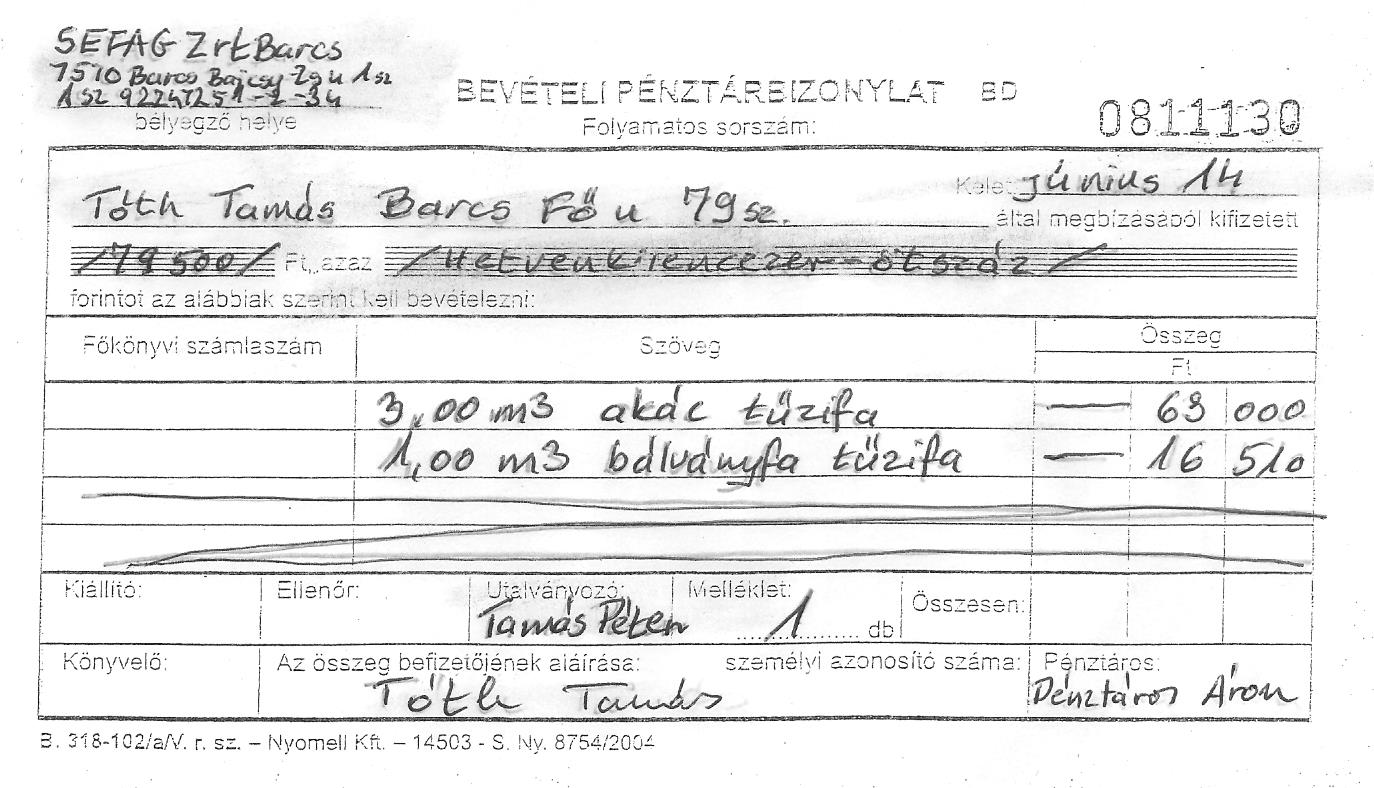 SEFAG Zrt Barcs
7570 Barcs Bajcsy Zs u 1sz
1sz 92247251-2-34
bélyegző helye
BEVÉTELI PÉNZTÁRBIZONYLAT BD
Folyamatos sorszám:
0811130
Kelet: június 14
Tóth Tamás Barcs Fő u 79 sz.
által megbízásából kifizetett
/79 500/ Ft, azaz /Hetvenkilencezer-ötszáz/
forintot az alábbiak szerint kell bevételezni:
Főkönyvi számlaszám Szöveg Összeg
Ft
3,00 m3 akác tűzifa — 63 000
1,00 m3 bálványfa tűzifa — 16 510
Kiállító: Ellenőr: Utalványozó: Melléklet: Összesen:
Tamás Péter 1 db
Könyvelő: Az összeg befizetőjének aláírása: személyi azonosító száma: Pénztáros:
Tóth Tamás Pénztáros Áron
B. 318-102/a/V. r. sz. – Nyomell Kft. – 14503 - S. Ny. 8754/2004